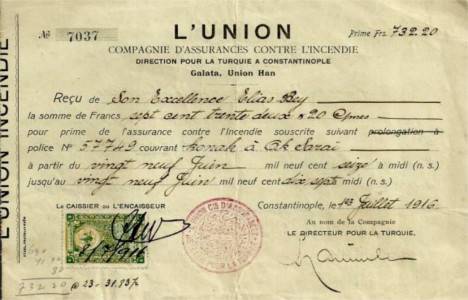 № 7037
L'UNION
Prime Frs. 732.20
COMPAGNIE D'ASSURANCES CONTRE L'INCENDIE
DIRECTION POUR LA TURQUIE A CONSTANTINOPLE
Galata, Union Han
Reçu de Son Excellence Elias Bey
la somme de Francs sept cent trente deux & 20 Cmes
pour prime de l'assurance contre l'Incendie souscrite suivant prolongation à
police No 57749 couvrant konak à Ak Serai
à partir du vingt neuf Juin mil neuf cent seize à midi (n. s.)
jusqu'au vingt neuf Juin mil neuf cent dix sept à midi (n. s.)
LE CAISSIER ou L'ENCAISSEUR
Constantinople, le 1er Juillet 1916
Au nom de la Compagnie
LE DIRECTEUR POUR LA TURQUIE,
732 20 @ 23-31.83%
L'UNION INCENDIE